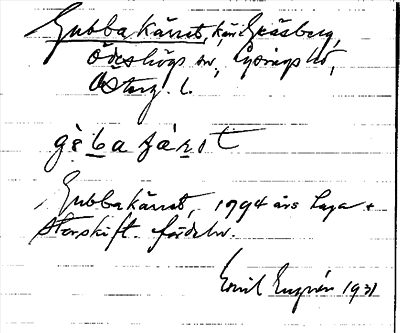 Gubbakärret, kär, Gräsberg,
Ödeshögs sn, Lysings hd,
Österg. l.
gɵ̀baɟárət
Gubbakärret, 1794 års Laga
storskift. fördeln.
Emil 1931